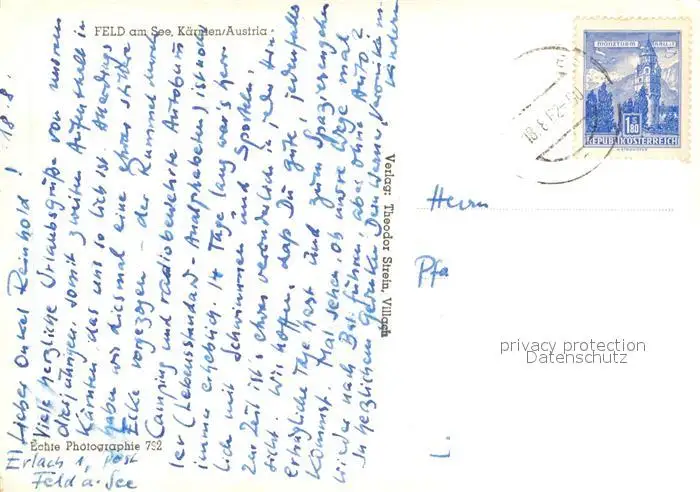 FELD am See, Kärnten/Austria
18.8.
Lieber Onkel Reinhold!
Viele herzliche Urlaubsgrüße von unserem
diesjährigen, somit zweiten Aufenthalt in
Kärnten, das uns so lieb ist. Allerdings
haben wir diesmal eine stille
Ecke vorgezogen - der Rummel durch
Camping und radiobewehrte Autobum
ler (Lebensstandard-Analphabeten) ist noch
immer erheblich. 14 Tage lang war's herr
lich mit Schwimmen und Sporteln,
zur Zeit ist's etwas veränderlich in jeder Hin
sicht. Wir hoffen, daß Du gute, jedenfalls
erträgliche Tage hast und zum Spazierengehen
kommst. Mal sehen, ob unsre Wege mal
wieder nach führen, aber ohne Auto?
In herzlichem Gedenken Dein Werner,
Kindern
Echte Photographie 792
Erlach 1, Post
Feld a. See
Verlag: Theodor Strein, Villach
18.8.62
1 S 80
REPUBLIK ÖSTERREICH
Herrn
Pfa
privacy protection
Datenschutz